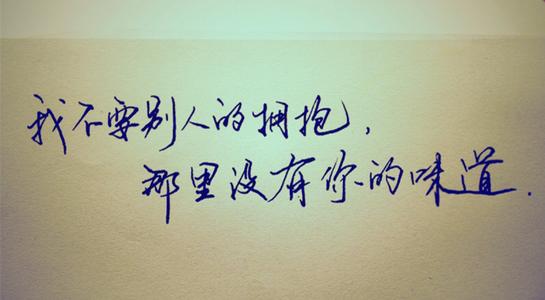 我不要别人的拥抱，
那里没有你的味道.